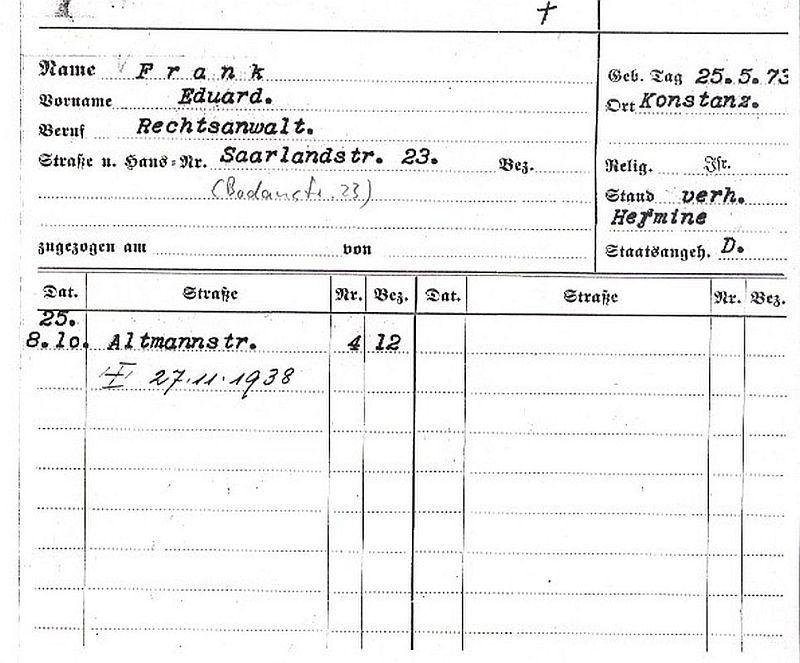 †
Name Frank Geb. Tag 25.5.73
Vorname Eduard. Ort Konstanz.
Beruf Rechtsanwalt.
Straße u. Haus-Nr. Saarlandstr. 23. Bez. Relig. Isr.
(Bodanstr. 23) Stand verh.
Hermine
zugezogen am von Staatsangeh. D.
Dat. Straße Nr. Bez. Dat. Straße Nr. Bez.
25.
8.10. Altmannstr. 4 12
27.11.1938